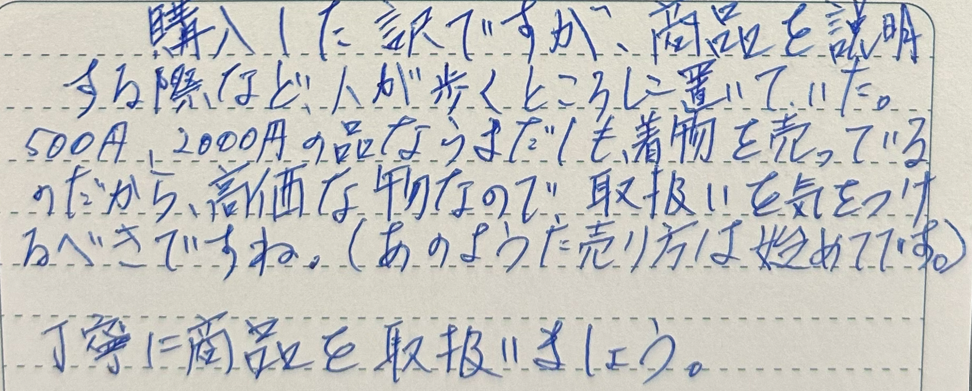 購入した訳ですが、商品を説明
する際など、人が歩くところに置いていた。
500円、2000円の品ならまだしも、着物を売っている
のだから、高価な物なので取扱いを気をつけ
るべきですね。(あのような売り方は始めてです。)
丁寧に商品を取扱いましょう。